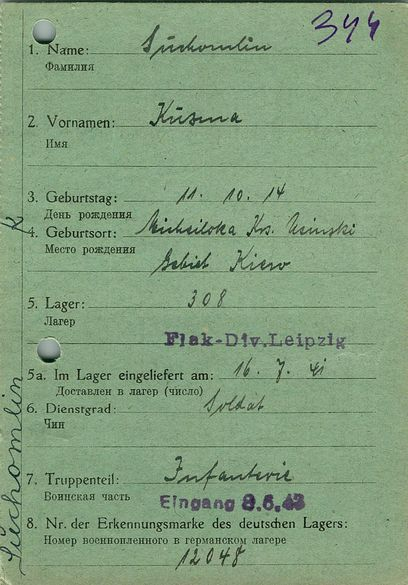 344
1. Name: Suchomlin
Фамилия
2. Vornamen: Kusma
Имя
3. Geburtstag: 11. 10. 14
День рождения
4. Geburtsort: Krs.
Место рождения
Gebiet Kiew
5. Lager: 308
Лагер
Flak-Div.Leipzig
5a. Im Lager eingeliefert am: 16. 7. 41
Доставлен в лагер (число)
6. Dienstgrad: Soldat
Чин
7. Truppenteil: Infanterie
Воинская часть
Eingang 8.6.43
8. Nr. der Erkennungsmarke des deutschen Lagers:
Номер военнопленного в германском лагере
12048
K
Suchomlin